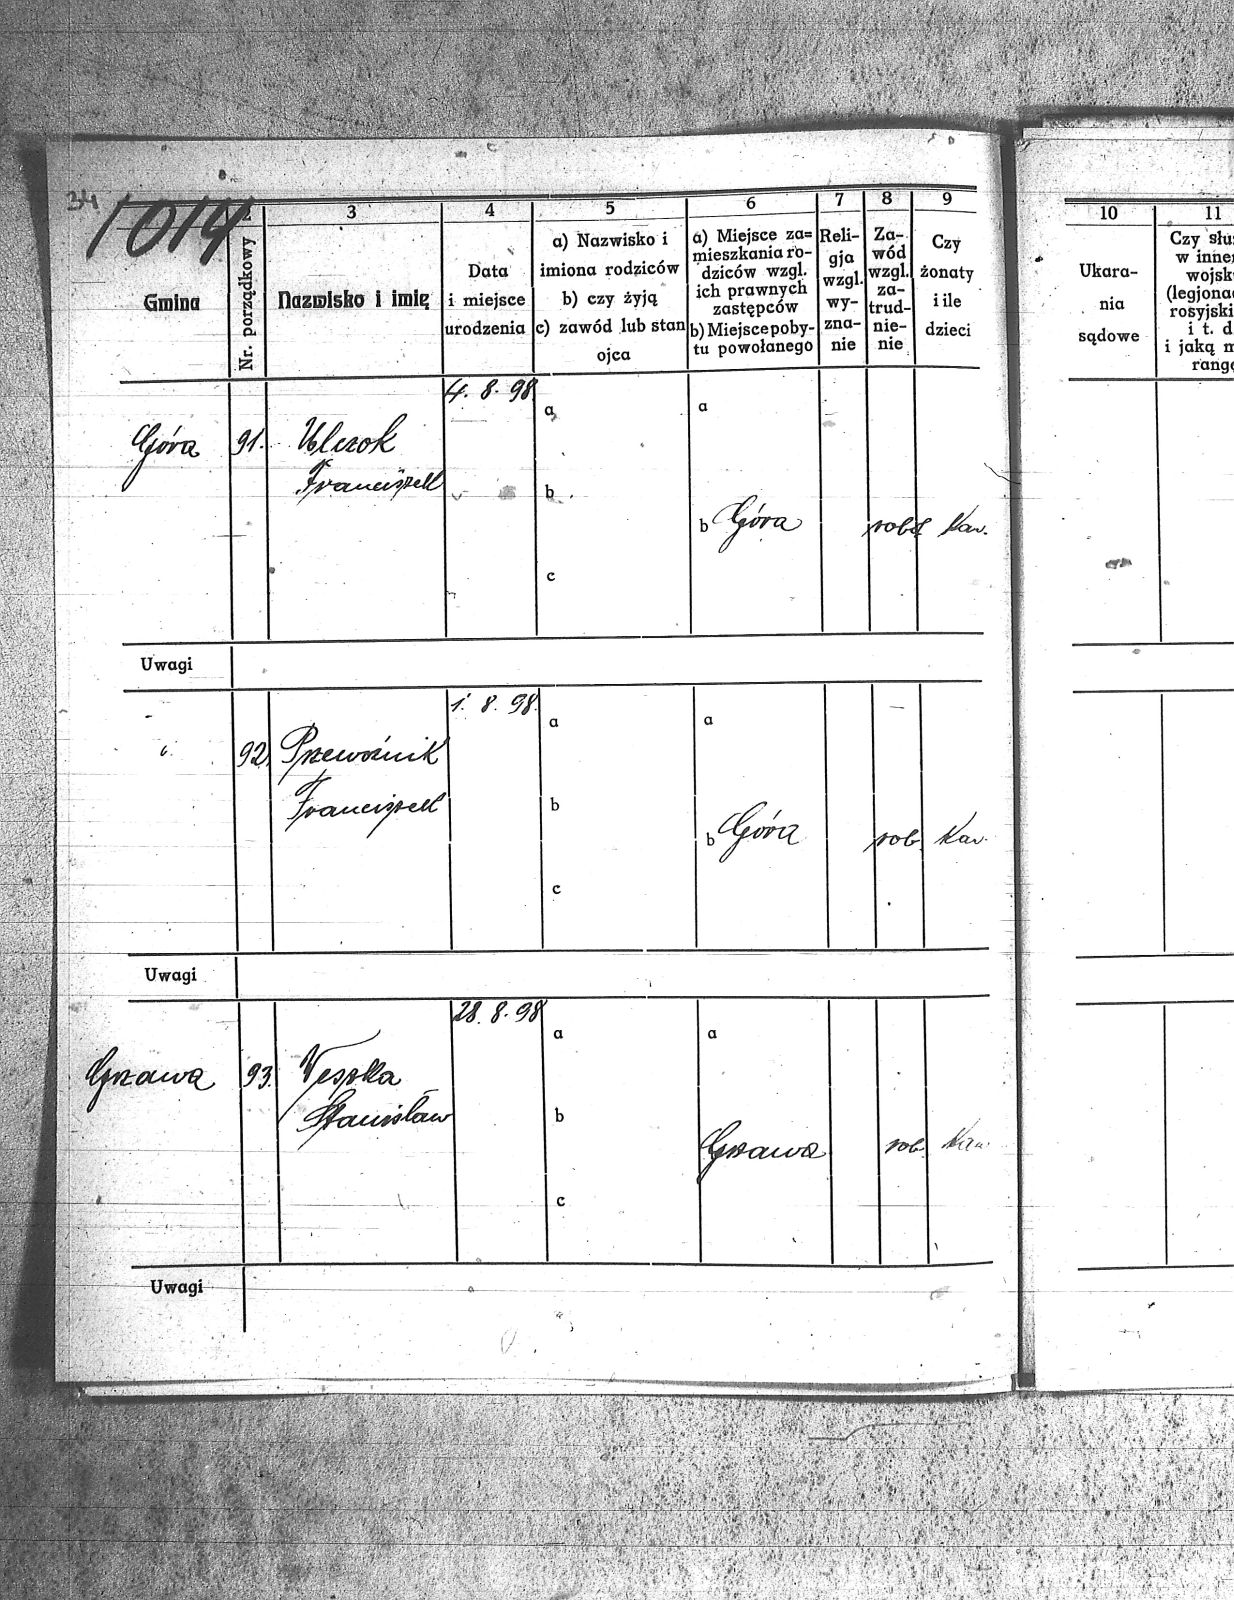 34
1014
2 3 4 5 6 7 8 9
Gmina
Nr. porządkowy
Nazwisko i imię
Data
i miejsce
urodzenia
a) Nazwisko i
imiona rodziców
b) czy żyją
c) zawód lub stan
ojca
a) Miejsce za=
mieszkania ro-
dziców wzgl.
ich prawnych
zastępców
b) Miejsce poby-
tu powołanego
Reli-
gja
wzgl.
wy-
zna-
nie
Za-
wód
wzgl.
za-
trud-
nie-
nie
Czy
żonaty
i ile
dzieci
10 11
Ukara-
nia
sądowe
Czy słu
w inne
wojsk
(legjona
rosyjski
i t. d
i jaką m
rang
4. 8. 98
a a
Góra 91.
Franciszek
b
b Góra rob Kaw.
c
Uwagi
1. 8. 98.
a a
92. Przewoźnik
Franciszek b
b Góra rob. Kaw.
c
Uwagi
28. 8. 98
a a
Grzawa 93.
Stanisław b
Grzawa rob. Kaw.
c
Uwagi